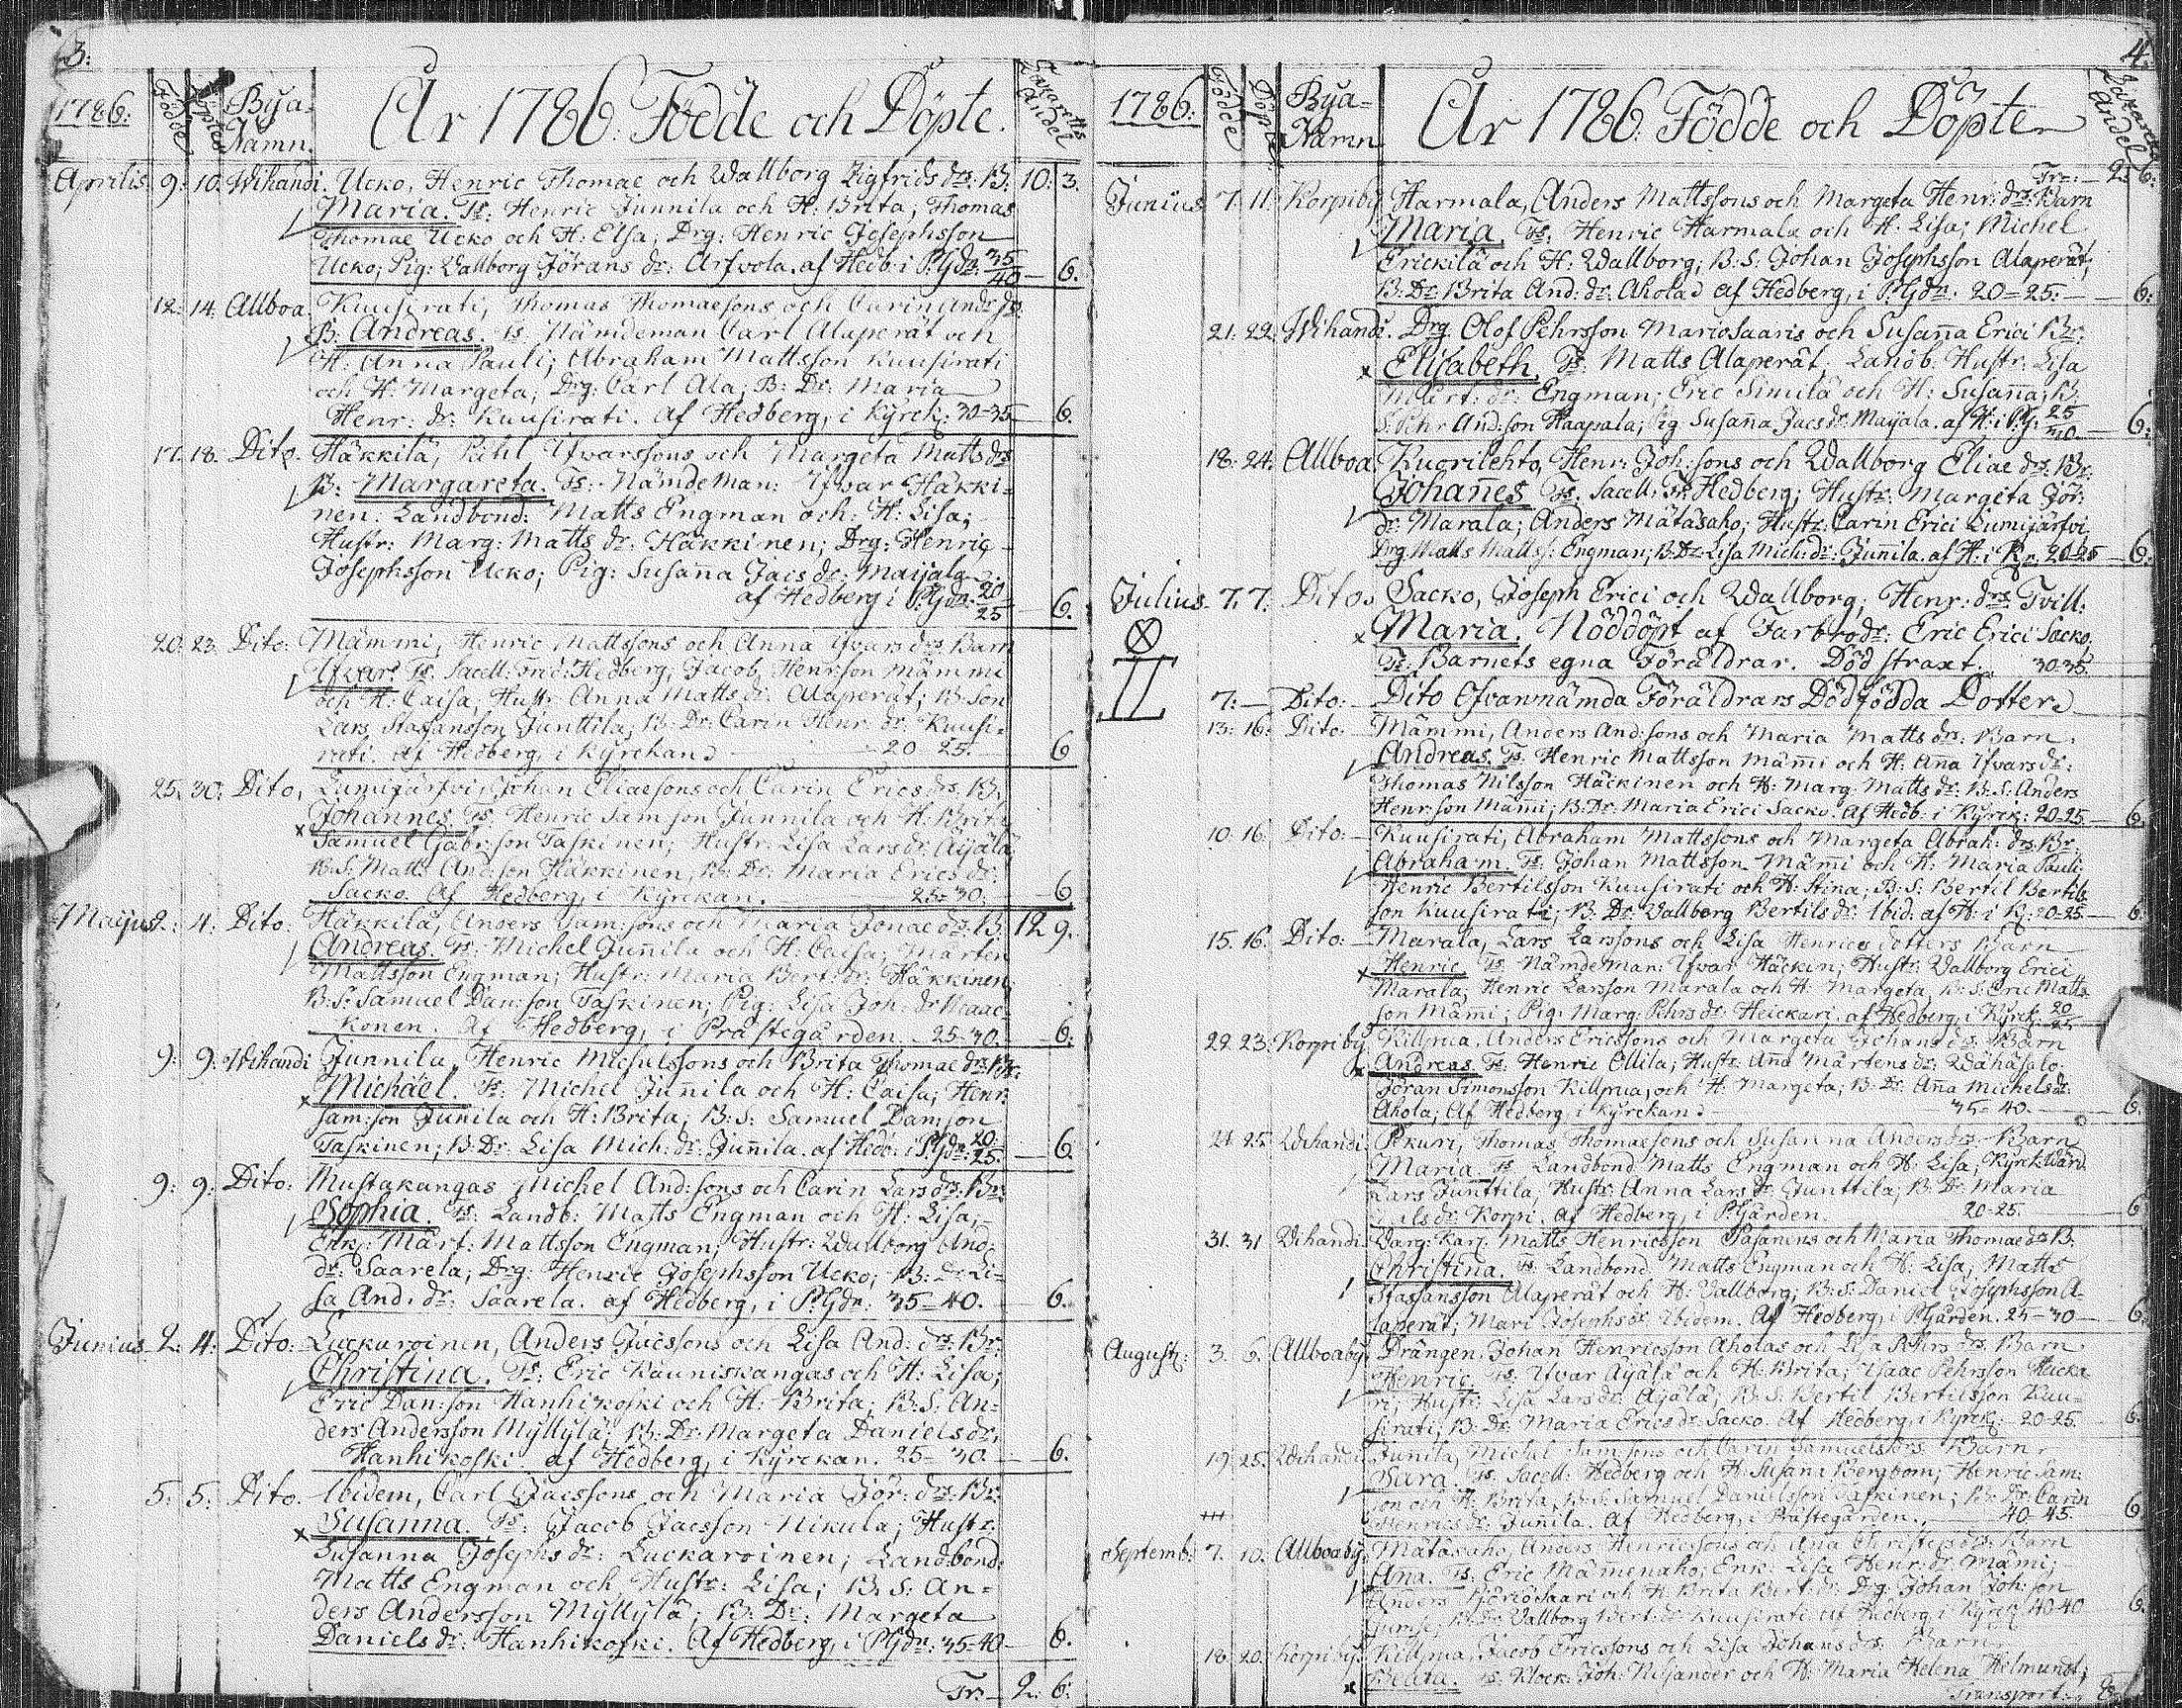 3:
1786:
Födde
Döpte
Bya-
Namn.
År 1786. Födde och Döpte.
Lazaretts
Andel
Aprilis 9: 10. Wihandi. Ucko, Henric Thomae och Wallborg Zigfrids drs: B: 10: 3.
Maria. Ts: Henric Junnila och H: Brita; Thomas
Thomae Ucko och H: Elsa; Drg: Henric Josephsson
Ucko; Pig: Wallborg Jörans dr: Arfvola. af Hedb: i P:Gdn: 35/40 — 6.
12: 14. Allboa. Kuusirati, Thomas Thomaesons och Carin And: drs:
B: Andreas. Ts: Nämdeman Carl Alaperät och
H: Anna Pauli; Abraham Mattsson Kuusirati
och H: Margeta; Drg: Carl Ala; B: Dr: Maria
Henr: dr: Kuusirati. af Hedberg, i Kyrck: 30-35 — 6.
17. 18. Dito. Häkkilä, Påhl Ifvarssons och Margeta Matts drs
B: Margareta. Ts: Nämdeman: Ifvar Häkki-
nen. Landbond: Matts Engman och H: Lisa;
Hustr: Marg: Matts dr: Häkkinen; Drg: Henric
Josephsson Ucko; Pig: Susanna Jacs dr: Maijala
af Hedberg i P:Gdn: 20/25 — 6.
20. 23. Dito: Mämmi, Henric Mattssons och Anna Ifvars drs Barn
Ifvar. Ts: Sacell: Fred: Hedberg, Jacob Henrsson Mämmi
och H: Caisa, Hustr: Anna Matts dr: Alaperät; B: Son
Lars Staffansson Junttila; B: Dr: Carin Henr: dr: Kuusi-
rati. af Hedberg, i Kyrckan 20 25. — 6
25. 30: Dito, Lumijärfvi, Johan Eliaesons och Carin Erics drs B:
Johannes. Ts: Henric Samson Junnila och H: Brita
Samuel Gabr:son Taskinen; Hustr: Lisa Lars dr: Äijälä,
B: S: Matts And:son Häkkinen, B: Dr: Maria Erics dr:
Sacko. Af Hedberg, i Kyrckan. 25-30: — 6
Maijus 2: 4: Dito: Häkkilä, Anders Sam:sons och Maria Jonae drs: B: 12 9.
Andreas. Ts: Michel Junnila och H: Caisa; Mårten
Mattsson Engman; Hustr: Maria Bert: dr: Häkkinen,
B: S: Samuel Dan:son Taskinen; Pig: Lisa Joh: dr
konen. Af Hedberg, i Prästegården. 25-30. — 6:
9: 9: Wihandi Junnila, Henric Michelssons och Brita Thomae drs: Br:
Michäel. Ts: Michel Junnila och H: Caisa; Henr:
Sam:son Junnila och H: Brita; B: S: Samuel Damson
Taskinen; B: Dr: Lisa Mich: dr: Junnila. af Hedb: i P:Gdn: 20/25. — 6
9: 9: Dito: Mustakangas Michel And:sons och Carin Lars drs: Br:
Sophia. Ts: Landb: Matts Engman och H: Lisa;
Enk: Mårt: Mattsson Engman; Hustr: Wallborg And:
dr: Saarela; Drg: Henric Josephsson Ucko; B: Dr Li-
sa And: dr: Saarela. af Hedberg, i P:Gdn: 35-40. — 6.
Junius 2: 4: Dito: Luckaroinen, Anders Jacssons och Lisa And: drs: Br:
Christina. Ts: Eric Kauniskangas och H: Lisa;
Eric Dan:son Hanhikoski och H: Brita; B: S: An-
ders Andersson Myllylä; B: Dr: Margeta Daniels dr:
Hanhikoski. af Hedberg, i Kyrckan. 25-30. — 6.
5: 5: Dito. Ibidem, Carl Jacssons och Maria Jör: drs: Br:
Susanna. Ts: Jacob Jacsson Nikula; Hustr:
Susanna Josephs dr: Luckaroinen; Landbond:
Matts Engman och Hustr: Lisa; B: S: An-
ders Andersson Myllylä; B: Dr: Margeta
Daniels dr: Hanhikoski. Af Hedberg, i P:Gdn: 35-40 — 6.
Tr:— 2: 6:
4.
1786:
Födde
Döpte
Bya-
Namn
År 1786. Födde och Döpte
Lazaretts
Andel
Tr:— 2: 6:
Junius 7. 11. Korpiby Harmala, Anders Mattssons och Margeta Henr: drs: Barn
Maria. Ts: Henric Harmala och H: Lisa; Michel
Erickilä och H: Wallborg; B: S: Johan Josephsson Alaperät;
B: Dr: Brita And: dr: Ahola af Hedberg, i P:Gdn. 20-25: — 6:
21: 22: Wihandi. Drg. Olof Pehrsson Mariosaaris och Susanna Erici Br:
Elisabeth. Ts: Matts Alaperät, Landb: Hustr: Lisa
Mårt: dr: Engman; Eric Simila och H: Susanna; B:
S: Pehr And:son Haapala; Pig Susanna Jacs dr: Maijala. af H: i P:G: 25/30. — 6:
18: 24: Allboa. Kuorilehto, Henr: Joh:sons och Wallborg Eliae drs: Br:
Johannes Ts. Sacell: Fr: Hedberg; Hustr: Margeta Jör:
dr: Marala; Anders Mätäsaho; Hustr: Carin Erici Lumijärfvi
Drg Matts Matts: Engman; B: Dr: Lisa Mich: dr: Junnila. af H: i K: 20-25 — 6:
Julius 7. 7. Dito. Sacko, Joseph Erici och Wallborg, Henr: drs Tvill:
Maria. Nöddöpt af Farbrodr: Eric Erici Sacko,
Ts: Barnets egna Föräldrar. Död straxt. 30-35.
7: — Dito: Dito Ofvannämda Föräldrars Dödfödda Dotter
13: 16: Dito: Mämmi, Anders And:sons och Maria Matts drs: Barn.
Andreas. Ts: Henric Mattsson Mämmi och H: Anna Ifvars dr:
Thomas Nilsson Häckinen och H: Marg: Matts dr: B: S: Anders
Henrson Mämmi; B: Dr: Maria Erici Sacko. Af Hedb: i Kyrck: 20-25. — 6.
10. 16. Dito: Kuusirati, Abraham Mattssons och Margeta Abrah: drs: Br:
Abraham. Ts: Johan Mattsson Mämmi och H: Maria Pauli
Henric Bertilsson Kuusirati och H: Stina; B: S: Bertil Bertils-
son Kuusirati; B: Dr: Wallborg Bertils dr: Ibid: af H: i K: 20-25. — 6.
15. 16. Dito: Marala, Lars Larssons och Lisa Henrics dotters Barn
Henric. Ts: Nämdeman: Ifvar Häckin; Hustr: Wallborg Erici
Marala; Henric Larsson Marala och H: Margeta, B: S: Eric Matts-
son Mämmi; Pig: Marg: Pehrs dr: Heickari. af Hedberg, i Kyrck: 20/25
22. 23: Korpiby. Killpua, Anders Ericssons och Margeta Johans drs: Barn
Andreas. Ts: Henric Ollila; Hustr: Anna Mårtens dr: Wähäsalo.
Jöran Simonsson Killpua, och H: Margeta; B: Dr: Anna Michels dr:
Ahola; Af Hedberg, i Kyrckan 35-40. — 6.
24. 25. Wihandi. Pekuri, Thomas Thomaesons och Susanna Anders drs: Barn
Maria. Ts: Landbond Matts Engman och H: Lisa; Kyrck:Wärd
Lars Junttila, Hustr: Anna Lars dr: Junttila; B: Dr: Maria
Nils dr: Korpi. Af Hedberg, i P:Gården. 20-25. — 6
31. 31 Wihandi. Warg: Karl. Matts Henricsson Pasanens och Maria Thomae drs B:
Christina. Ts: Landbond Matts Engman och H: Lisa, Matts
Staffansson Alaperät och H: Wallborg; B: S: Daniel Josephsson A-
laperät; Mari Josephs dr: Ibidem. Af Hedberg, i P:Gården. 25-30 — 6.
August: 3. 6. Allboaby. Drängen Johan Henricsson Aholas och Lisa Pehrs drs: Barn
Henric. Ts: Ifvar Äyälä och H: Brita; Isaac Pehrsson Hucka-
ri, Hustr: Lisa Lars dr: Äyälä; B: S: Bertil Bertilsson Kuu-
sirati; B: Dr: Maria Erics dr: Sacko. Af Hedberg, i Kyrck: 20-25. — 6.
19. 25. Wihandi. Junnila, Michel Samsons och Carin Samuels drs: Barn
Sara. Ts: Sacell: Hedberg och H: Susana Bergbom; Henric Sam:
son och H: Brita, B: S: Samuel Danielsson Taskinen; B: Dr: Carin
Henrics dr: Junnila. Af Hedberg, i Prästegården. 40-45. — 6.
Septemb: 7. 10. Allboaby. Mätäsaho, Anders Henricssons och Ana Christers drs: Barn
Ana. Ts: Eric Mämmenaho; Enk: Lisa Henr: dr: Mämmi;
Anders och H: Brita Bert: dr: Drg: Johan Joh:son
B: Dr: Wallborg Bert: dr: Kuusirati. Af Hedberg, i Kyrck 40-40 — 6.
18. 20. Korpiby. Killpua, Jacob Ericssons och Lisa Johans drs: Barn
Beata. Ts: Klock: Joh: och H: Maria Helena Helmundt;
Transport: